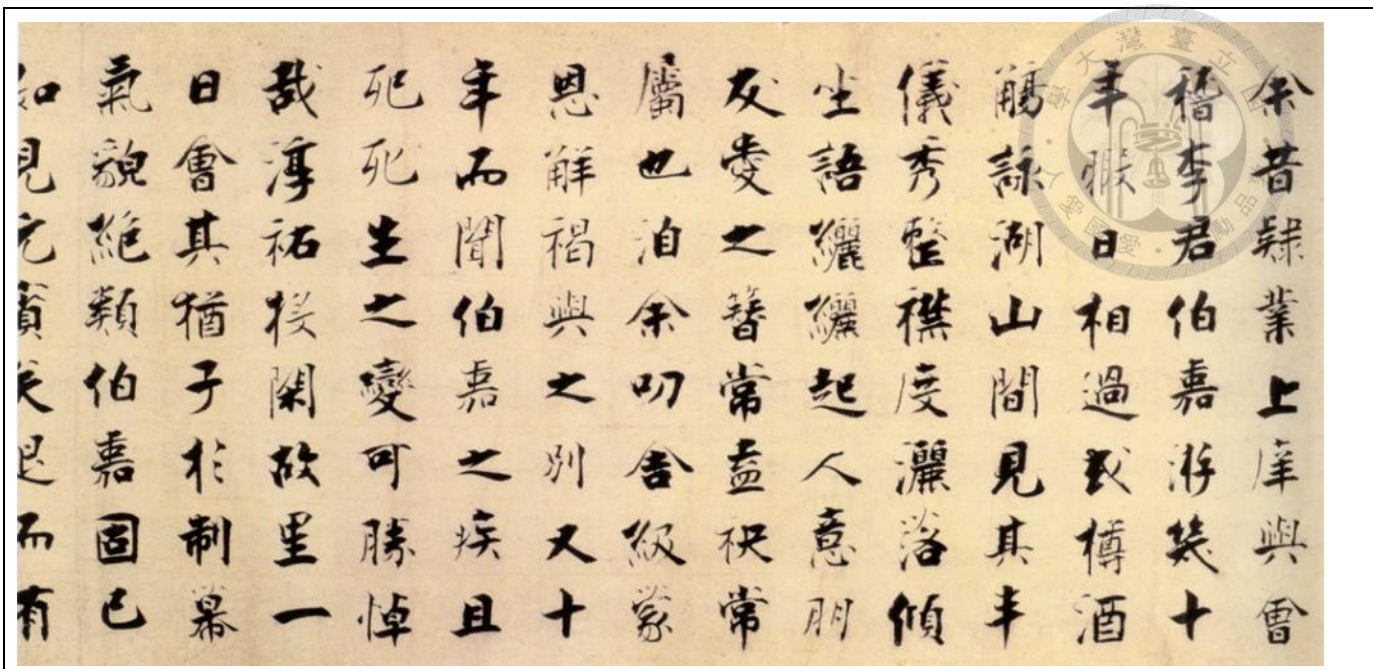 余昔隸業上庠與會
稽李君伯嘉游幾十
年暇日相過或樽酒
觴詠湖山間見其丰
儀秀整襟度灑落傾
坐語纚纚起人意朋
友愛之簪常盍袂常
屬也洎余叨舍級蒙
恩解褐與之別又十
年而聞伯嘉之疾且
死死生之變可勝悼
哉淳祐投閑故里一
日會其猶子於制幕
氣貌絕類伯嘉固已
如見元賓矣退而有
國立臺灣大學